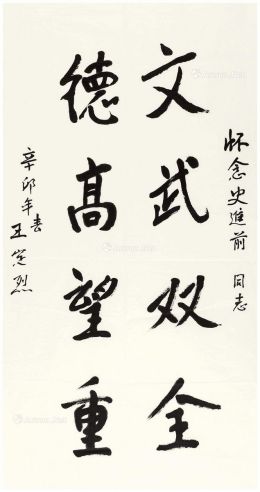 怀念史進前同志
文武双全
德高望重
辛卯年春
王定烈